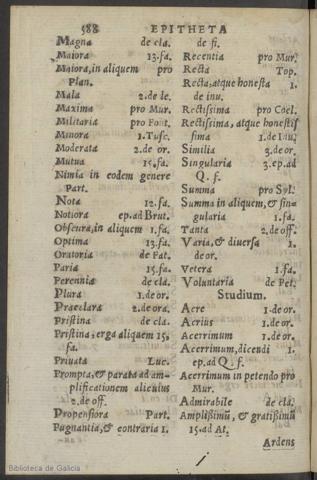 588 EPITHETA
Magna de cla.
Maiora 13.fa.
Maiora,in aliquem pro
Plan.
Mala 2.de le.
Maxima pro Mur.
Militaria pro Font.
Minora 1.Tusc.
Moderata 2.de or.
Mutua 15.fa.
Nimia in eodem genere
Part.
Nota 12.fa.
Notiora ep.ad Brut.
Obscura,in aliquem 1.fa.
Optima 13.fa.
Oratoria de Fat.
Paria 15.fa.
Perennia de cla.
Plura 1.de or.
Præclara 2.de ora.
Pristina de cla.
Pristina,erga aliquem 15,
fa.
Priuata Luc.
Prompta,& parata ad am-
plificationem alicuius
2.de off.
Propensiora Part.
Pugnantia,& contraria 1.
de fi.
Recentia pro Mur.
Recta Top.
Recta,atque honesta 1.
de inu.
Rectissima pro Coel.
Rectissima, atque honestis
sima 1.de inu.
Similia 3.de or.
Singularia 3.ep.ad
Q. f.
Summa pro Syl.
Summa in aliquem,& sin-
gularia 1.fa.
Tanta 2.de off.
Varia,& diuersa 1.
de or.
Vetera 1.fa.
Voluntaria de Pet.
Studium.
Acre 1.de or.
Acrius 1.de or.
Acerrimum 1.de or.
Acerrimum,dicendi 1.
ep.ad Q. f.
Acerrimum in petendo pro
Mur.
Admirabile de cla.
Amplissimũ,& gratissimũ
15.ad At.
Ardens
Biblioteca de Galicia